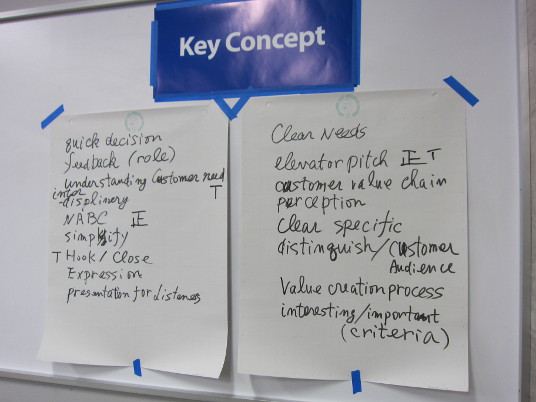 Key Concept
quick decision
feedback (role)
understanding Customer need
inter T
displinery
NABC 正
simplify
T Hook / Close
Expression
presentation for listeners
Clear Needs
elevator pitch 正 T
customer value chain
perception
Clear specific
distinguish/Customer
Audience
Value creation process
interesting/important
(criteria)